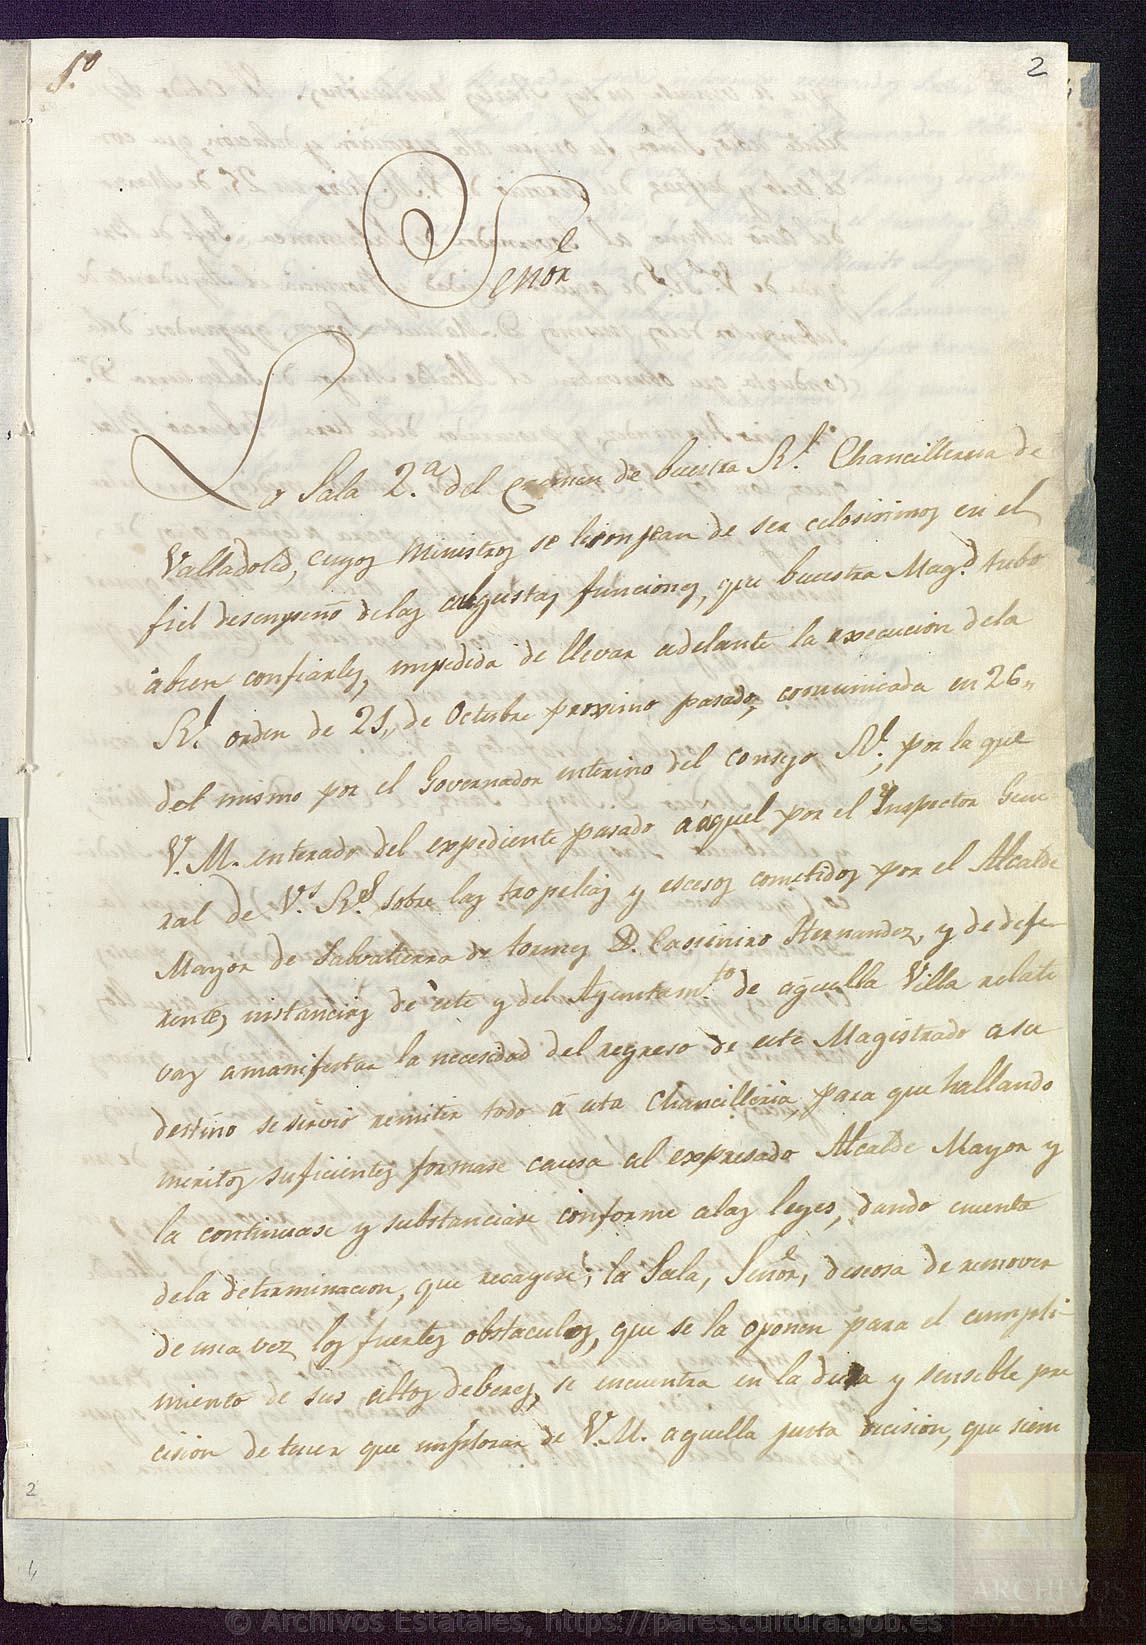 1.º
2
Señor
La Sala 2.ª del Crimen de buestra R.l Chancilleria de
Valladolid, cuyos Ministros se lisonjean de ser celosisimos en el
fiel desempeño delas augustas funciones, que buestra Mag.d tubo
abien confiarles, impedida de llevar adelante la execucion dela
R.l orden de 21,, de Octubre proximo pasado, comunicada en 26,,
del mismo por el Governador interino del consejo R.l, por la que
V. M. enterado del expediente pasado aaquel por el Inspector Gene-
ral de V.s R.s sobre las tropelias y escesos cometidos por el Alcalde
Mayor de Salvatierra de tormes D. Casimiro Hernandez, y de dife-
rentes instancias de este y del Ayuntam.to de aquella Villa relati
vas amanifestar la necesidad del regreso de este Magistrado a su
destino se sirvió remitir todo á esta Chancilleria, para que hallando
meritos suficientes formase causa al expresado Alcalde Mayor y
la continuase y substanciase conforme alas leyes, dando cuenta
dela determinacion, que recayese; la Sala, Señor, deseosa de remover
de una vez los fuertes obstaculos, que se la oponen para el cumpli-
miento de sus altos deberes, se encuentra en la dura y sensible pre
cision de tener que implorar de V. M. aquella justa decision, que siem
2
4
ARCHIVOS
ESTATALES
© Archivos Estatales, https://pares.cultura.gob.es